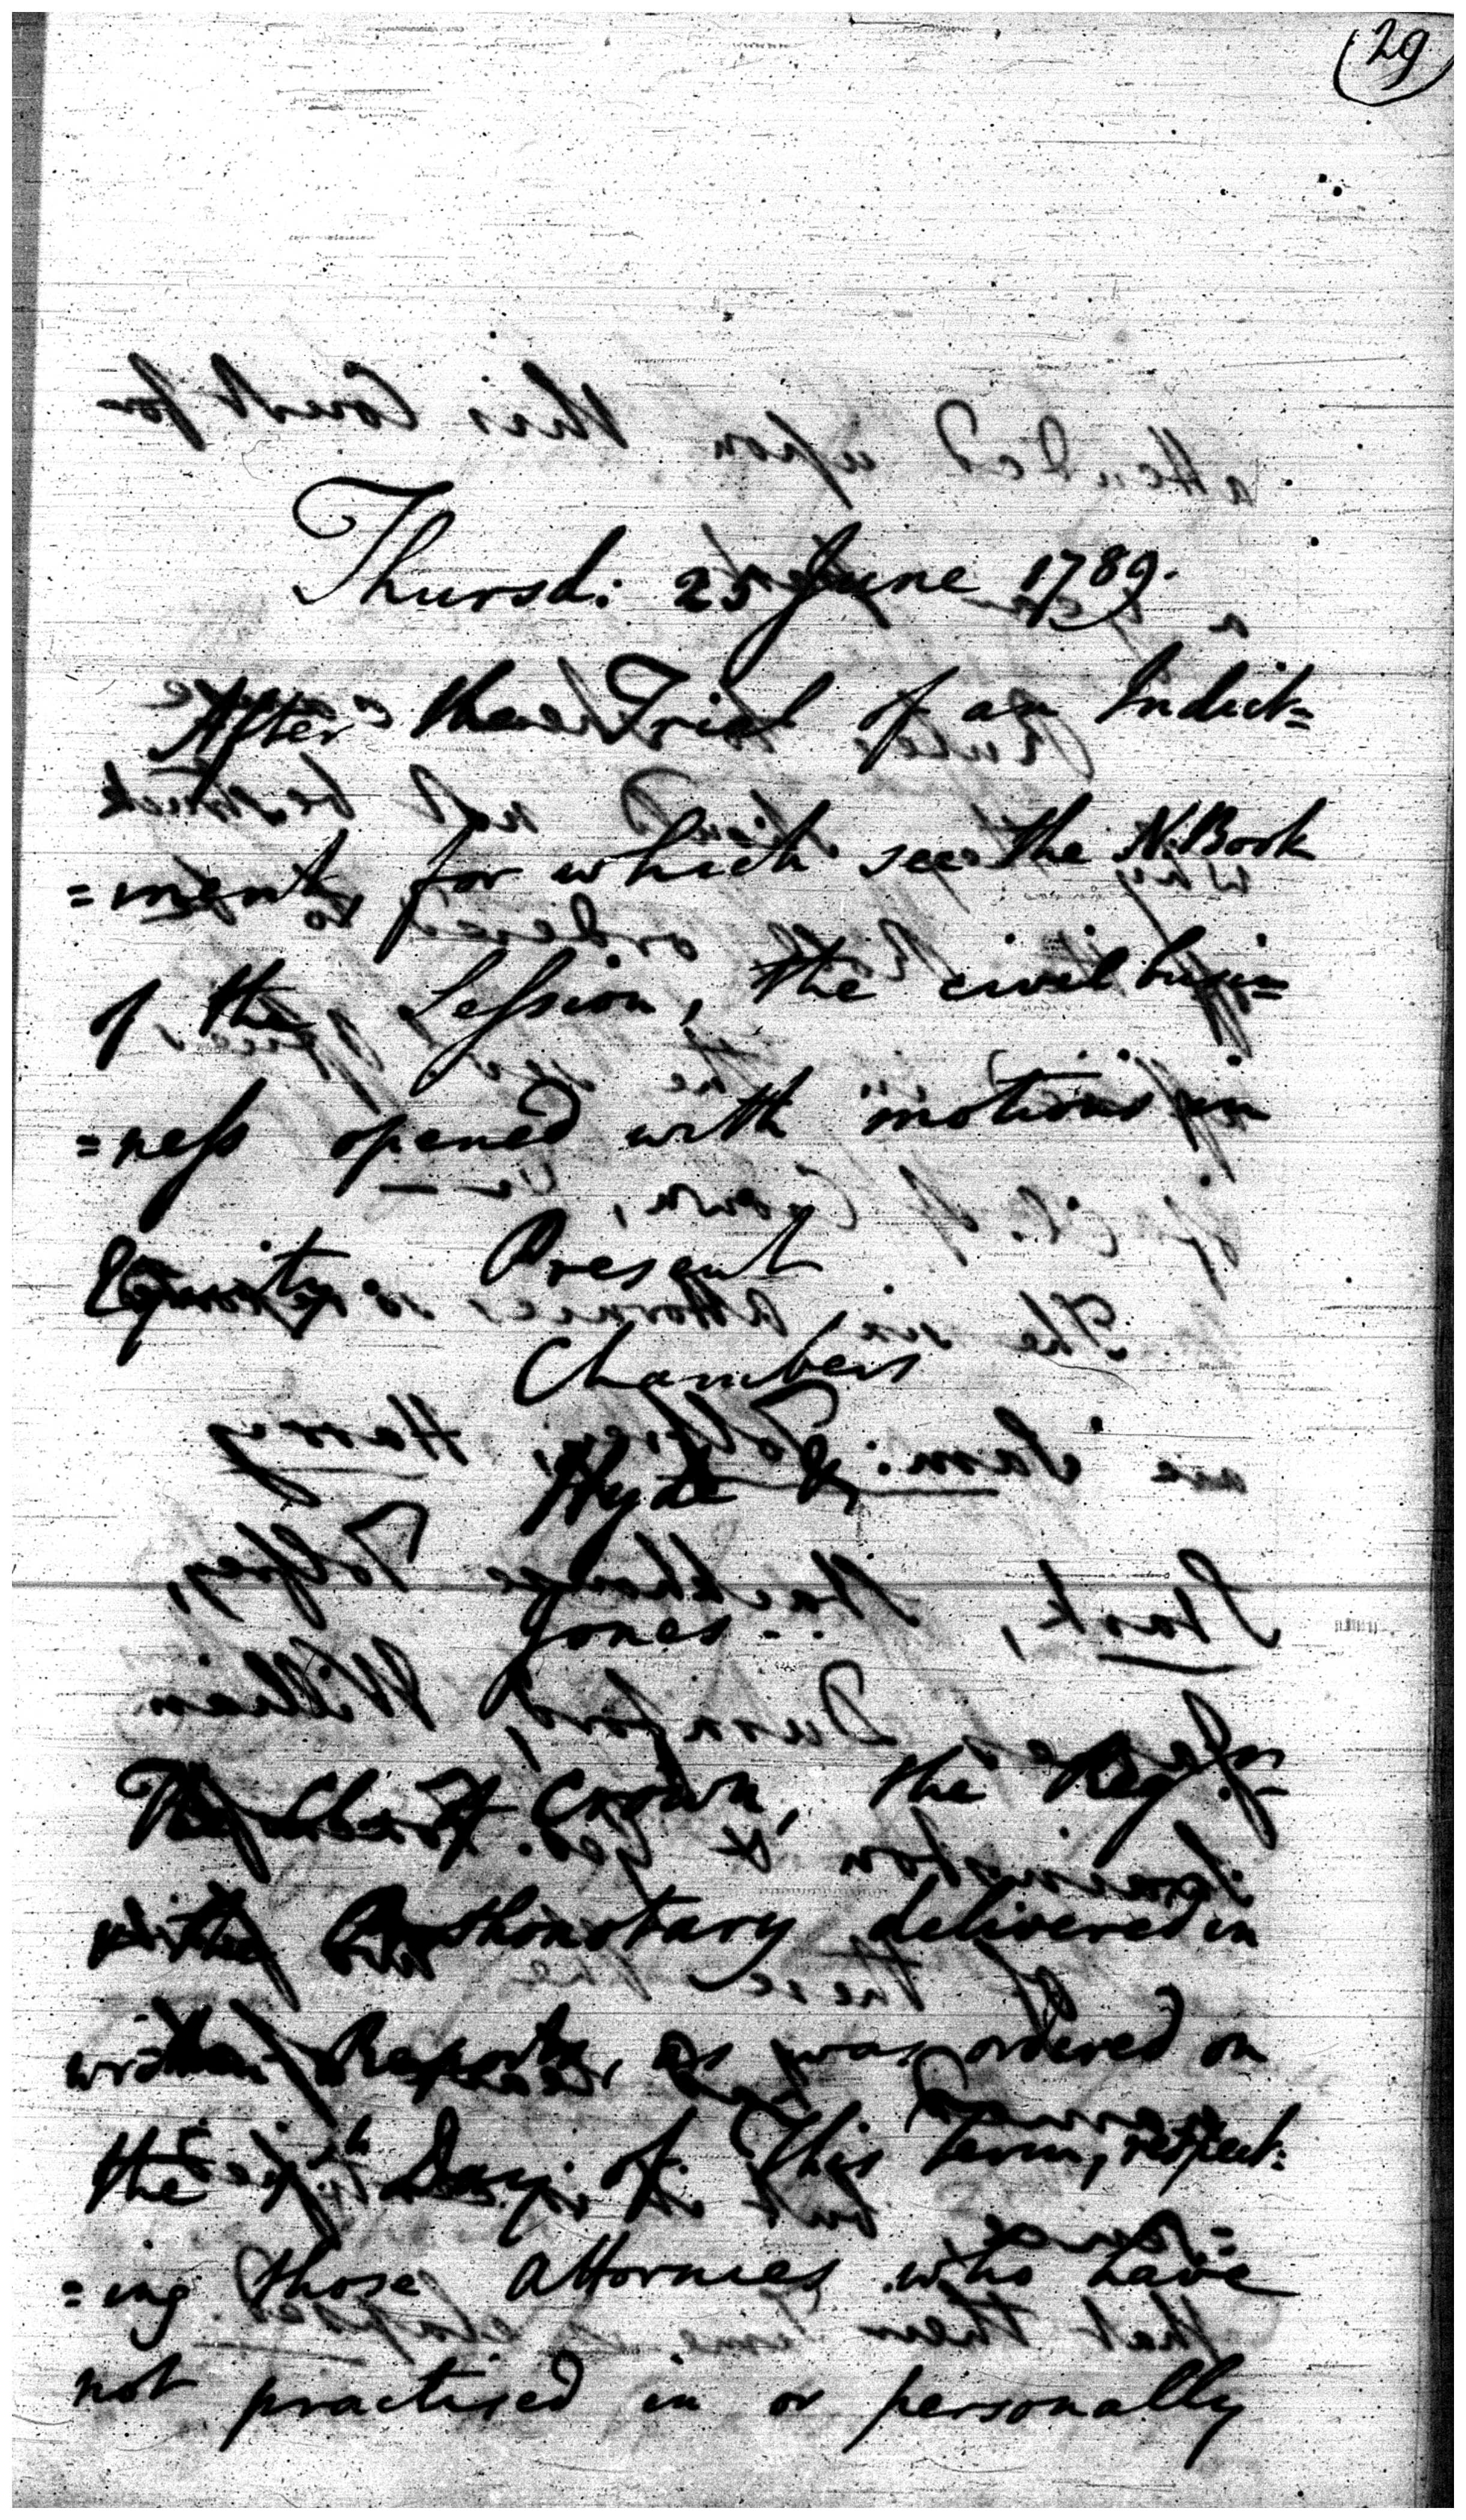 29
Thursd: 25 June 1789.
After the Trial of an Indict=
=ment, for which see the N. Book
of the Session, the civil busi=
=ness opened with motions in
Equity.
Present
Chambers
Hyde &
Jones.
The Clerk of Crown, the Reg.
with Prothonotary delivered in
written Reports, as was ordered on
the Day of This term, respect=
=ing those Attornies who have
not practised in or personally